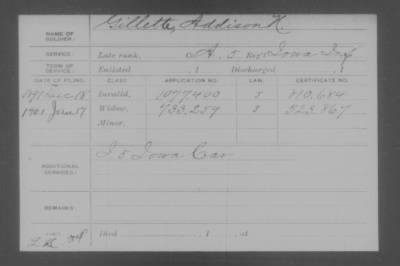 NAME OF SOLDIER: Gillette, Addison K.
SERVICE: Late rank, Co. A, 5 Reg't Iowa Inf
TERM OF SERVICE: Enlisted , 1 Discharged , 1
DATE OF FILING. CLASS. APPLICATION NO. LAW. CERTIFICATE NO.
1891 Dec 18 Invalid, 1077400 3 810,684
Jan 17 Widow, 733,259 3 523,867
Minor,
ADDITIONAL SERVICES: I 5 Iowa Cav
REMARKS:
Died , 1 , at